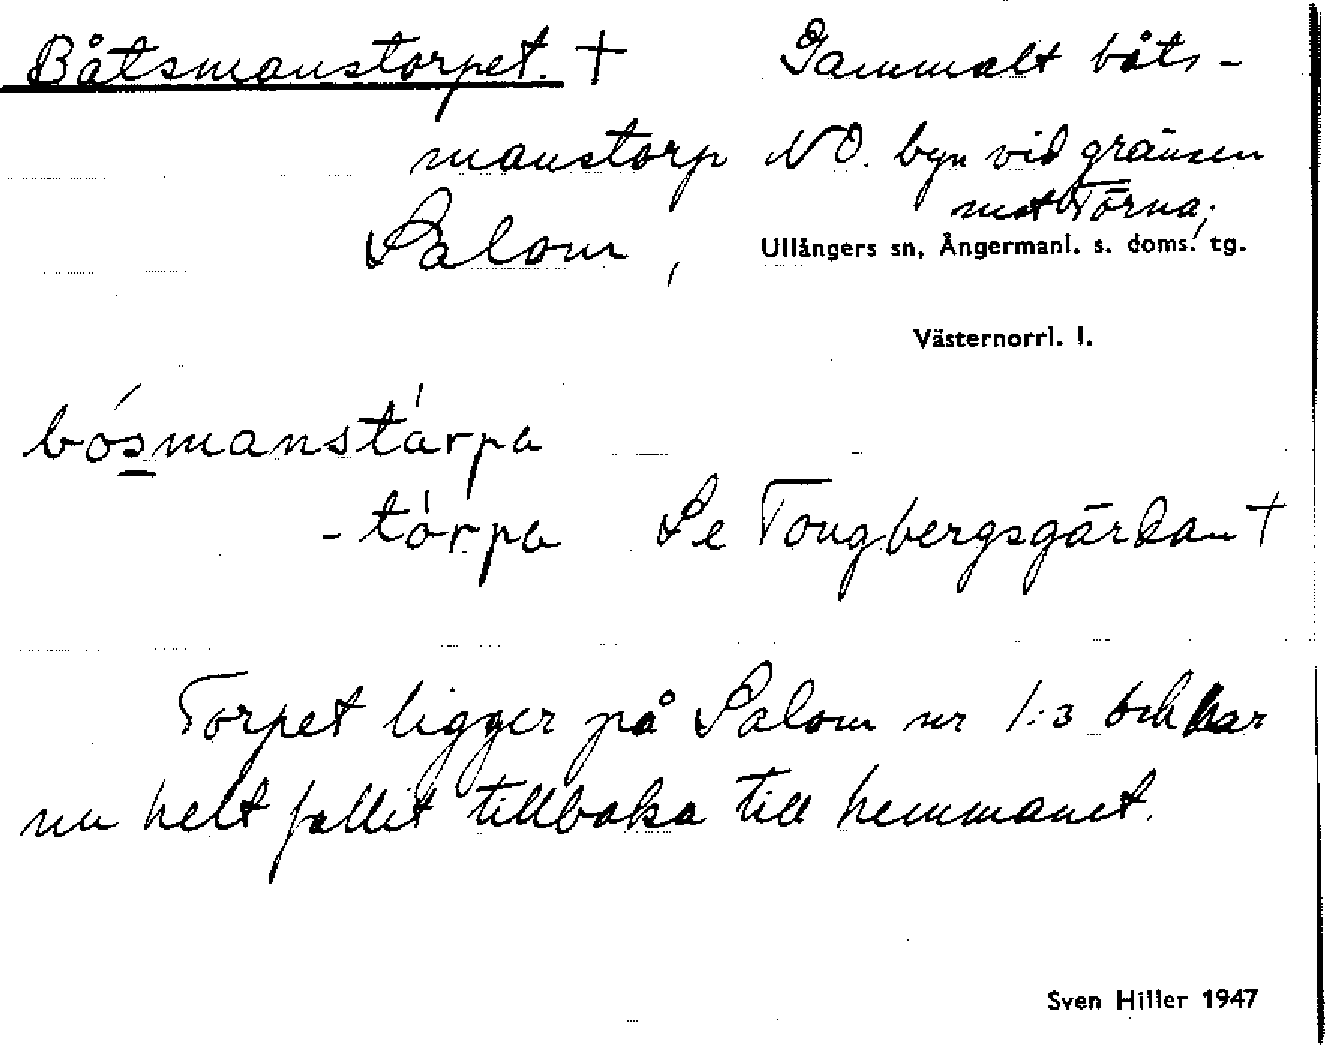 Båtsmanstorpet. † Gammalt båts-
manstorp NO. byn vid gränsen
mot Törna;
Salom, Ullångers sn, Ångermanl. s. doms. tg.
Västernorrl. l.
bósmanstárpa
-tórpa Se Tongbergsgärdan †
Torpet ligger på Salom nr 1:3 och har
nu helt fallit tillbaka till hemmanet.
Sven Hiller 1947